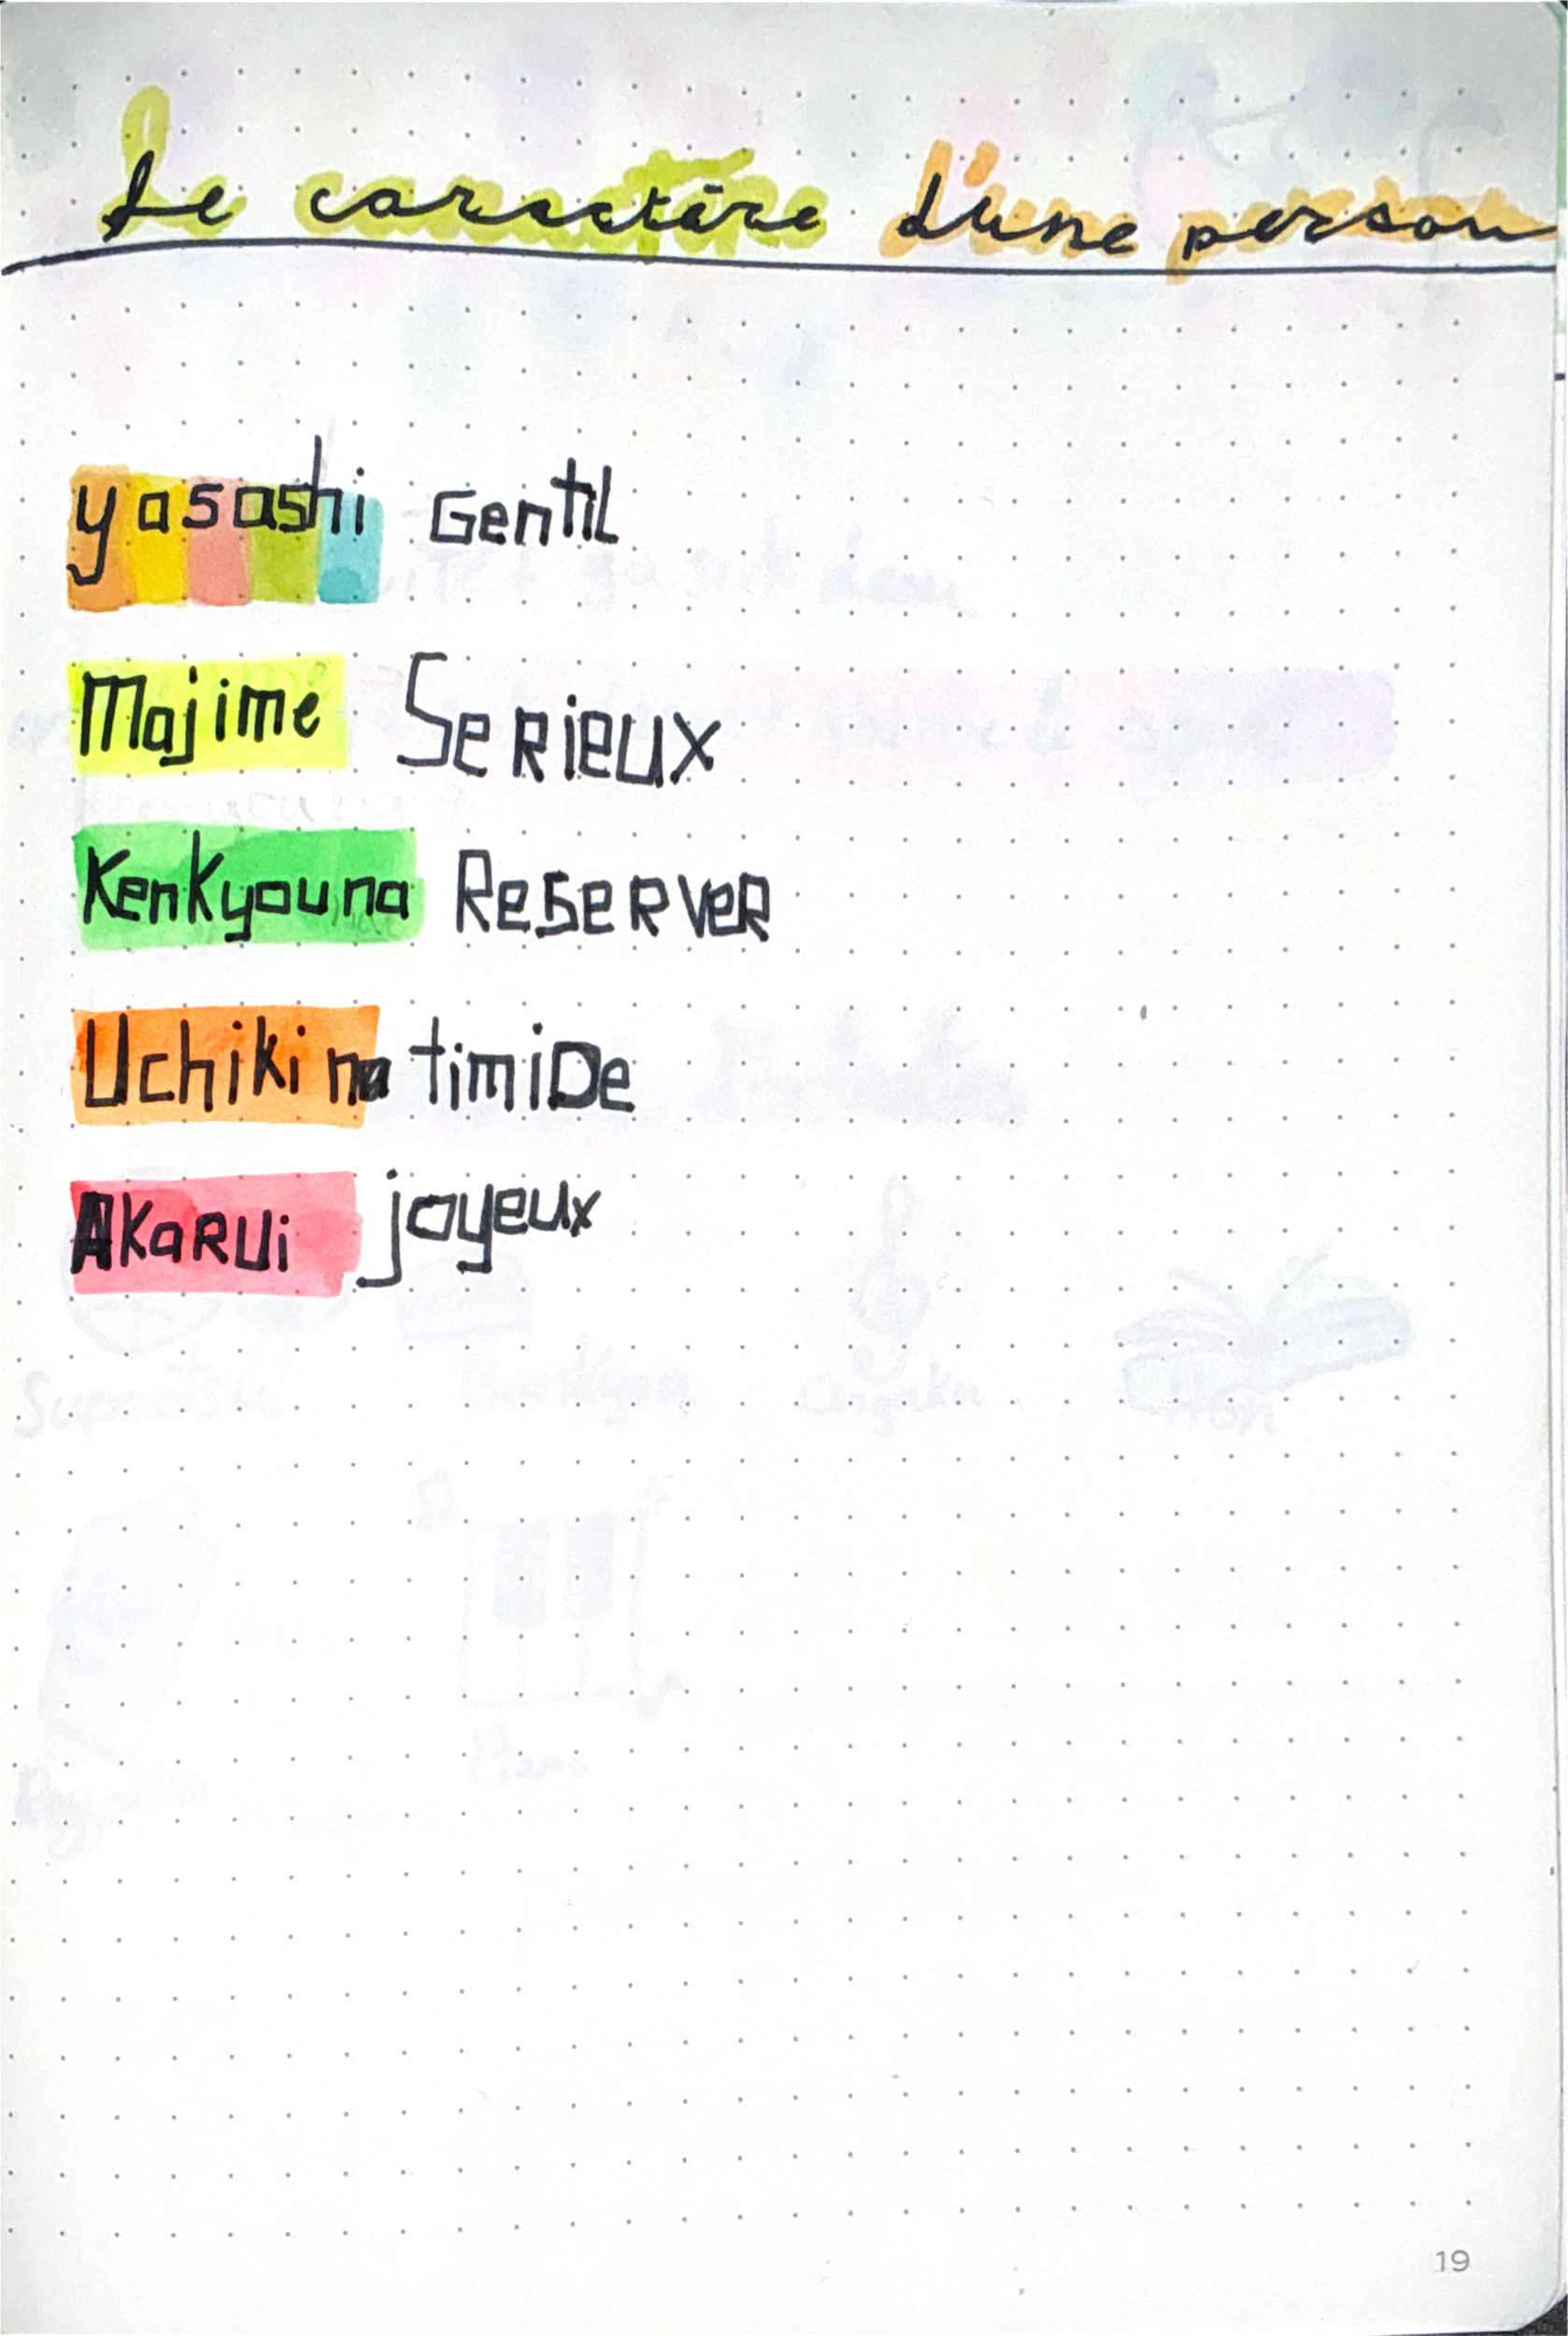 Le caractère d'une person
yasashi Gentil
Majime Serieux
Kenkyouna Reserver
Uchiki na timide
Akarui joyeux
19